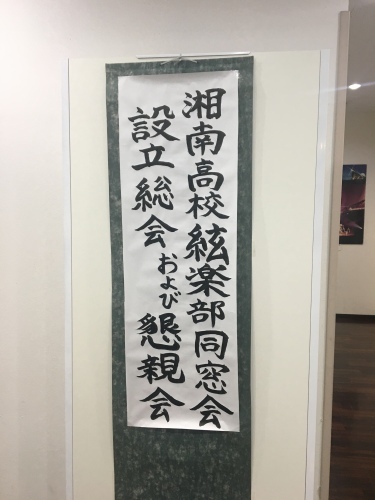 湘南高校絃楽部同窓会
設立総会および懇親会